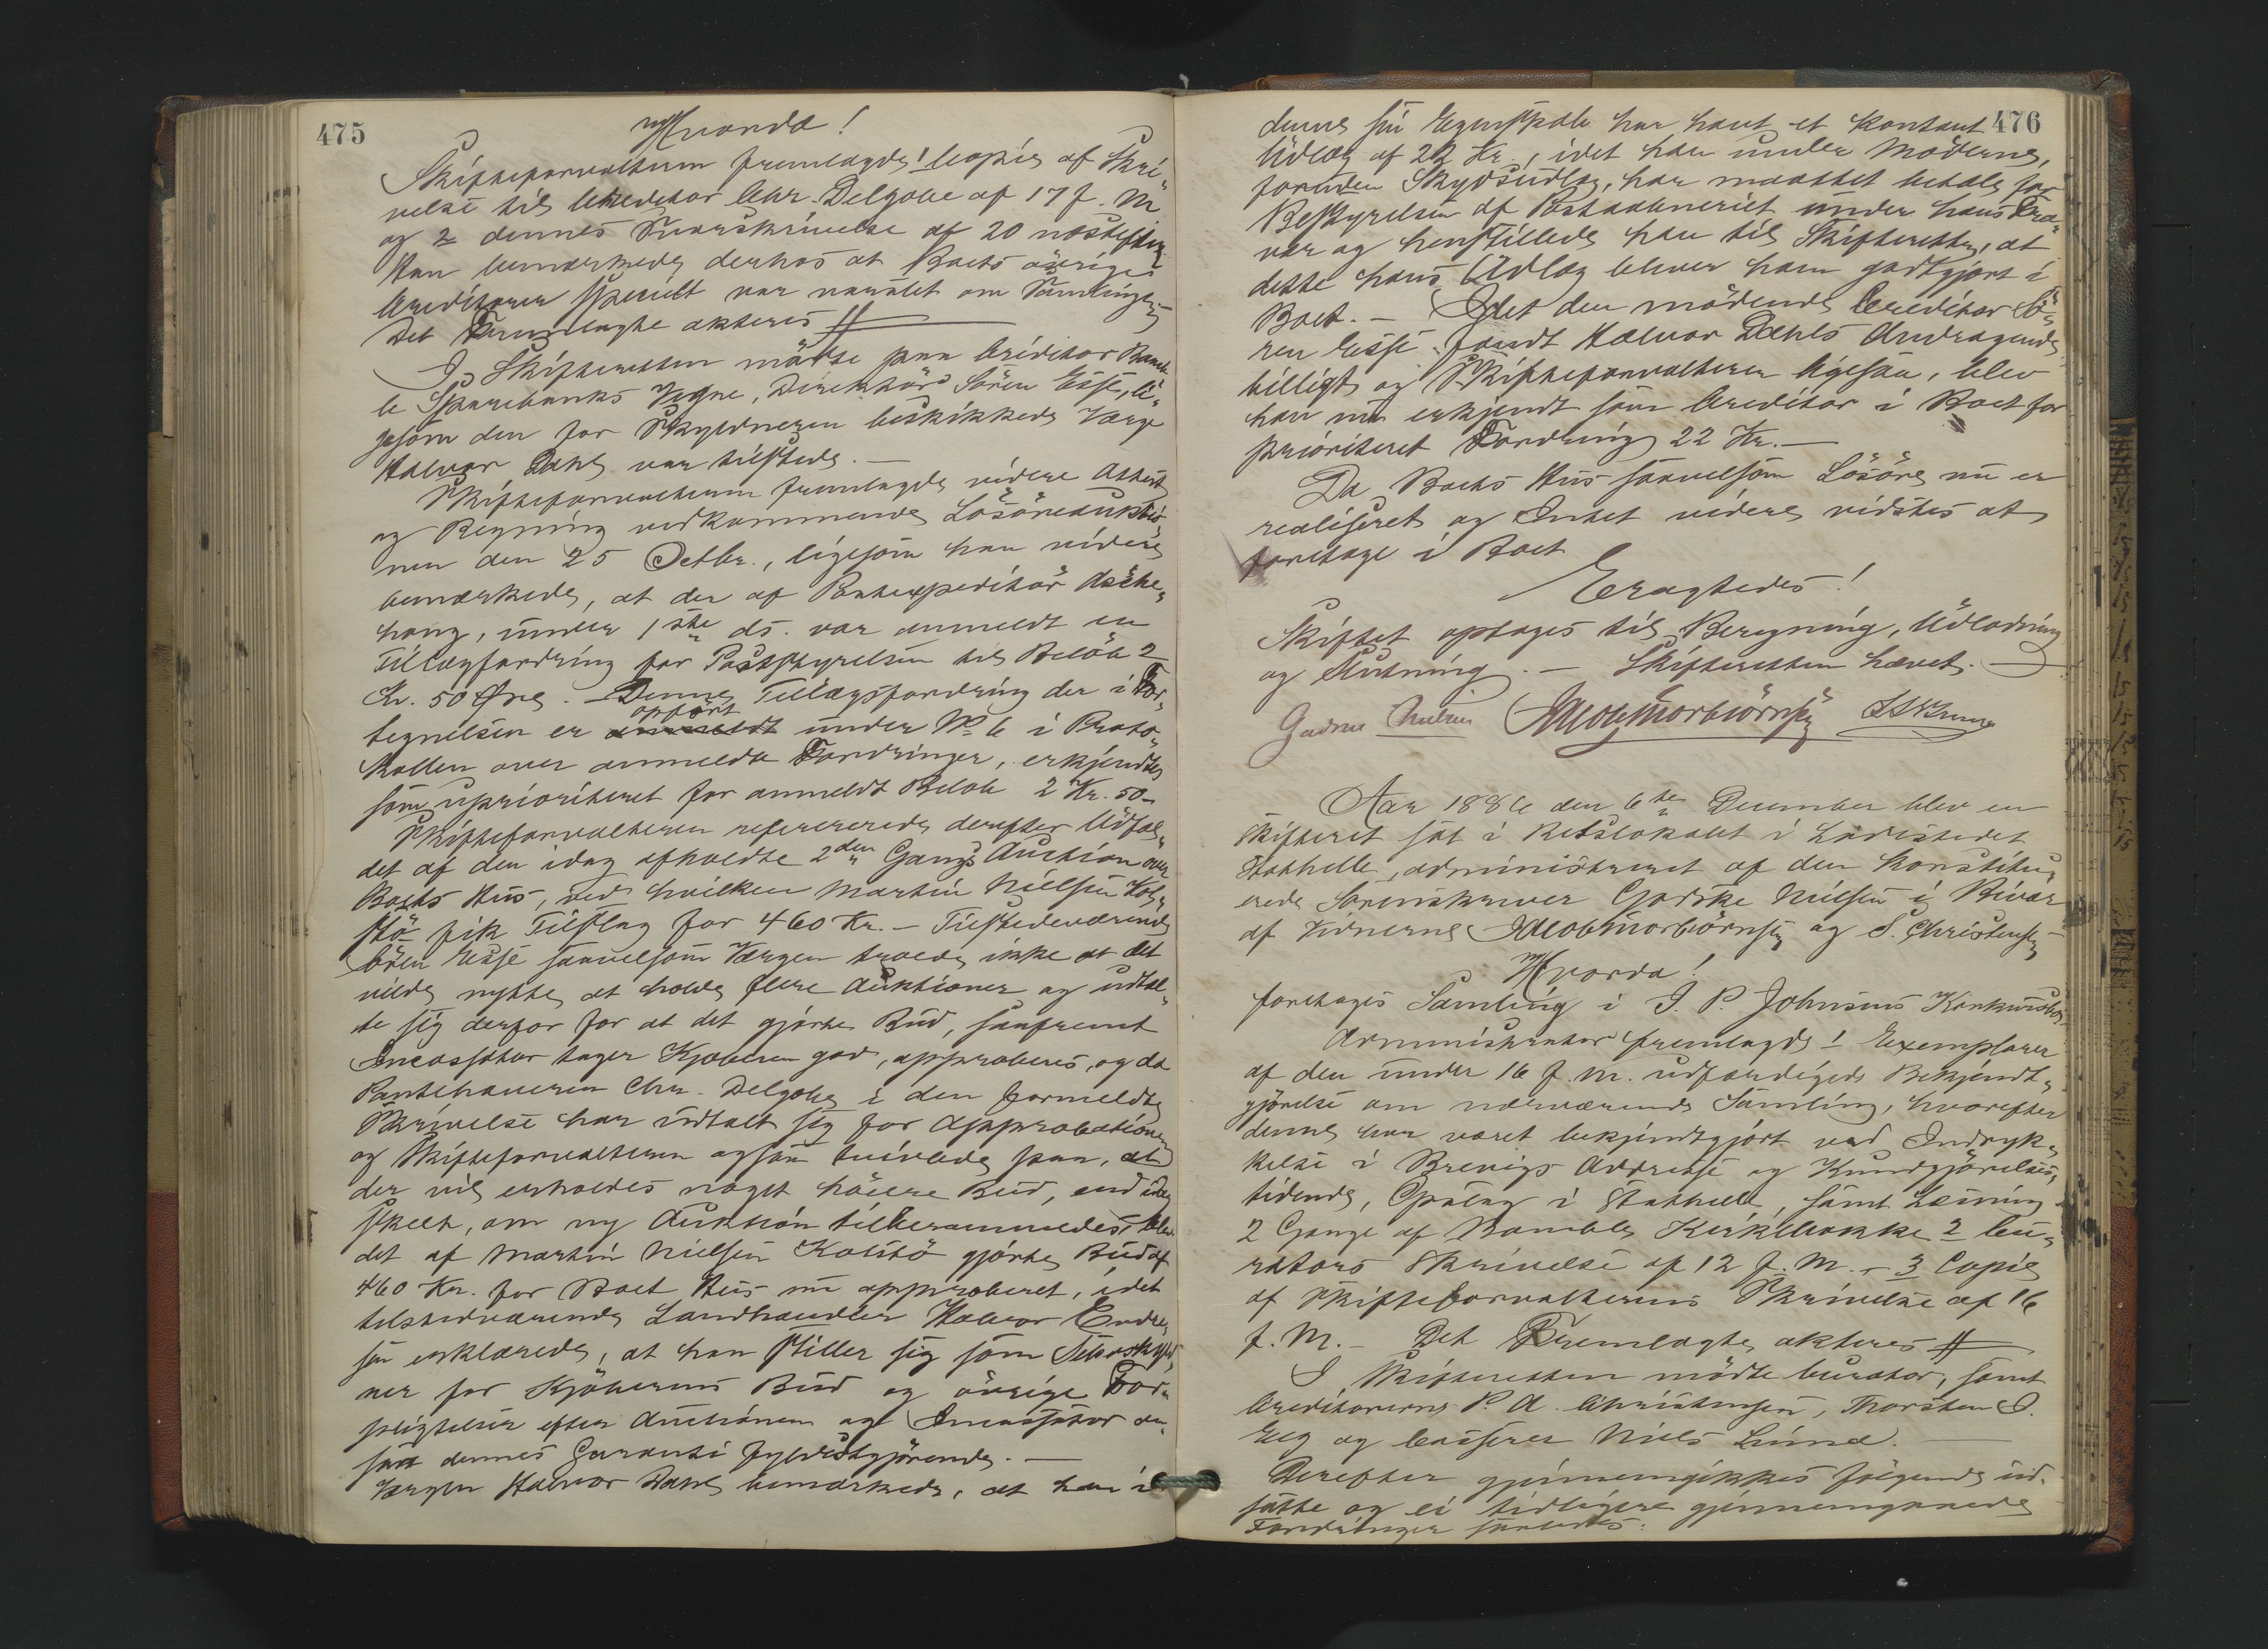 475
Hvorda!
Skifteforvalteren fremlagde 1 Copie af Skri„
velse til Creditor Chr. Delgobe af 17 f. M.
og 2 dennes Svarskrivelse af 20 næstefter
Han bemærkede derhos at Boets øvrige
Creditorer specielt var varslet om Samlingen
Det Fremlagte akteres #
I Skifteretten mødte paa Creditor Bamb„
le Sparebanks Vegne, Direktør Sören Esse, li„
gesom den for Skyldneren beskikkede Værge
Halvor Dahl var tilstede. —
Skifteforvalteren fremlagde videre Attest
og Regning vedkommende Lösöreauktio„
nen den 25 Octbr., ligesom han videre
bemærkede, at der af Postexpeditör
under 1ste ds. var anmeldt en
Tillægsfordring for Postbestyrelsen til Beløb 2
Kr. 50 Øre. — Denne Tillægsfordring der i For„
tegnelsen er anmeldt opført under No 6 i Proto„
kollen over anmeldte Fordringer, erkjendtes
som uprioriteret for anmeldt Beløb 2 Kr. 50 —
Skifteforvalteren refererede derefter Udfal„
det af den idag afholdte 2den Gangs Auction over
Boets Hus, ved hvilken Martin Nielsen Kol„
stö fik Tilslag for 460 Kr. — Tilstedeværende
Sören Esse saavelsom Værgen troede ikke at det
vilde nytte at holde flere Auktioner og udtal„
te sig derfor for at det gjorte Bud, saafremt
Incassator tager Kjøberen god, approberes, og da
Panthaveren Chr. Delgobe i den formeldte
Skrivelse har udtalt sig for Approbationen
og Skifteforvalteren ogsaa tvivlede paa, at
der vil erholdes noget høiere Bud, end idag
skeet, om ny Auktion tilberammedes, blev
det af Martin Nielsen Kolstö gjorte Bud af
460 Kr. for Boets Hus nu approberet, idet
tilstedværende Landhandler Halvor Endre„
sen erklærede, at han stiller sig som Selvskyld„
ner for Kjöberens Bud og övrige For„
pligtelser efter Auctionen og Incassator an„
saa dennes Garanti fyldestgjørende. —
Værgen Halvor Dahl bemærkede, at han i
476
denne sin Egenskab har havt et kontant
Udlæg af 22 Kr., idet han under Møderne,
foruden Skydsudlæg, har maattet betale for
Bestyrelsen af Postaabneriet under hans Fra„
vær og henstillede han til Skifteretten, at
dette hans Udlæg bliver ham godtgjort i
Boet. — Idet den mødende Creditor Sö„
ren Esse fandt Halvor Dahls Andragende
billigt, og Skifteforvalteren ligesaa, blev
han nu erkjendt som Creditor i Boet for
prioriteret Fordring 22 Kr. —
Da Boets Hus saavelsom Lösöre nu er
realiseret og Intet videre vidstes at
foretage i Boet
Eragtedes!
Skiftet optages til Beregning, Udlodning
og Slutning. — Skifteretten hævet. —
Nielsen Jacob Thorbiörnsen
Aar 1886 den 6te December blev en
Skifteret sat i Retslokalet i Ladestedet
Stathelle, administreret af den konstitu„
erede Sorenskriver Godske Nielsen i Bivær
af Vidnerne Jacob Thorbiörnsen og S. Christensen —
Hvorda!
foretoges Samling i J. P. Johnsens Konkursbo. —
Administrator fremlagde 1 Exemplarer
af den under 16 f. M. udfærdigede Bekjendt„
gjörelse om nærværende Samling, hvorefter
denne har været bekjendtgjort ved Indryk„
kelse i Brevigs Addresse og Kundgjörelses„
tidende, Opslag i Stathelle, samt Læsning
2 Gange af Bamble Kirkebakke 2 Cu„
rators Skrivelse af 12 f. M. — 3 Copie
af Skifteforvalterens Skrivelse af 16
f. M. — Det Fremlagte akteres #
I Skifteretten mødte Curator, samt
Creditorerne P. A. Christensen, Thorsten J.
Eeg og Casserer Niels Lund. —
Derefter gjennemgikkes følgende ud„
satte og ei tidligere gjennemgaaede
Fordringer saaledes: